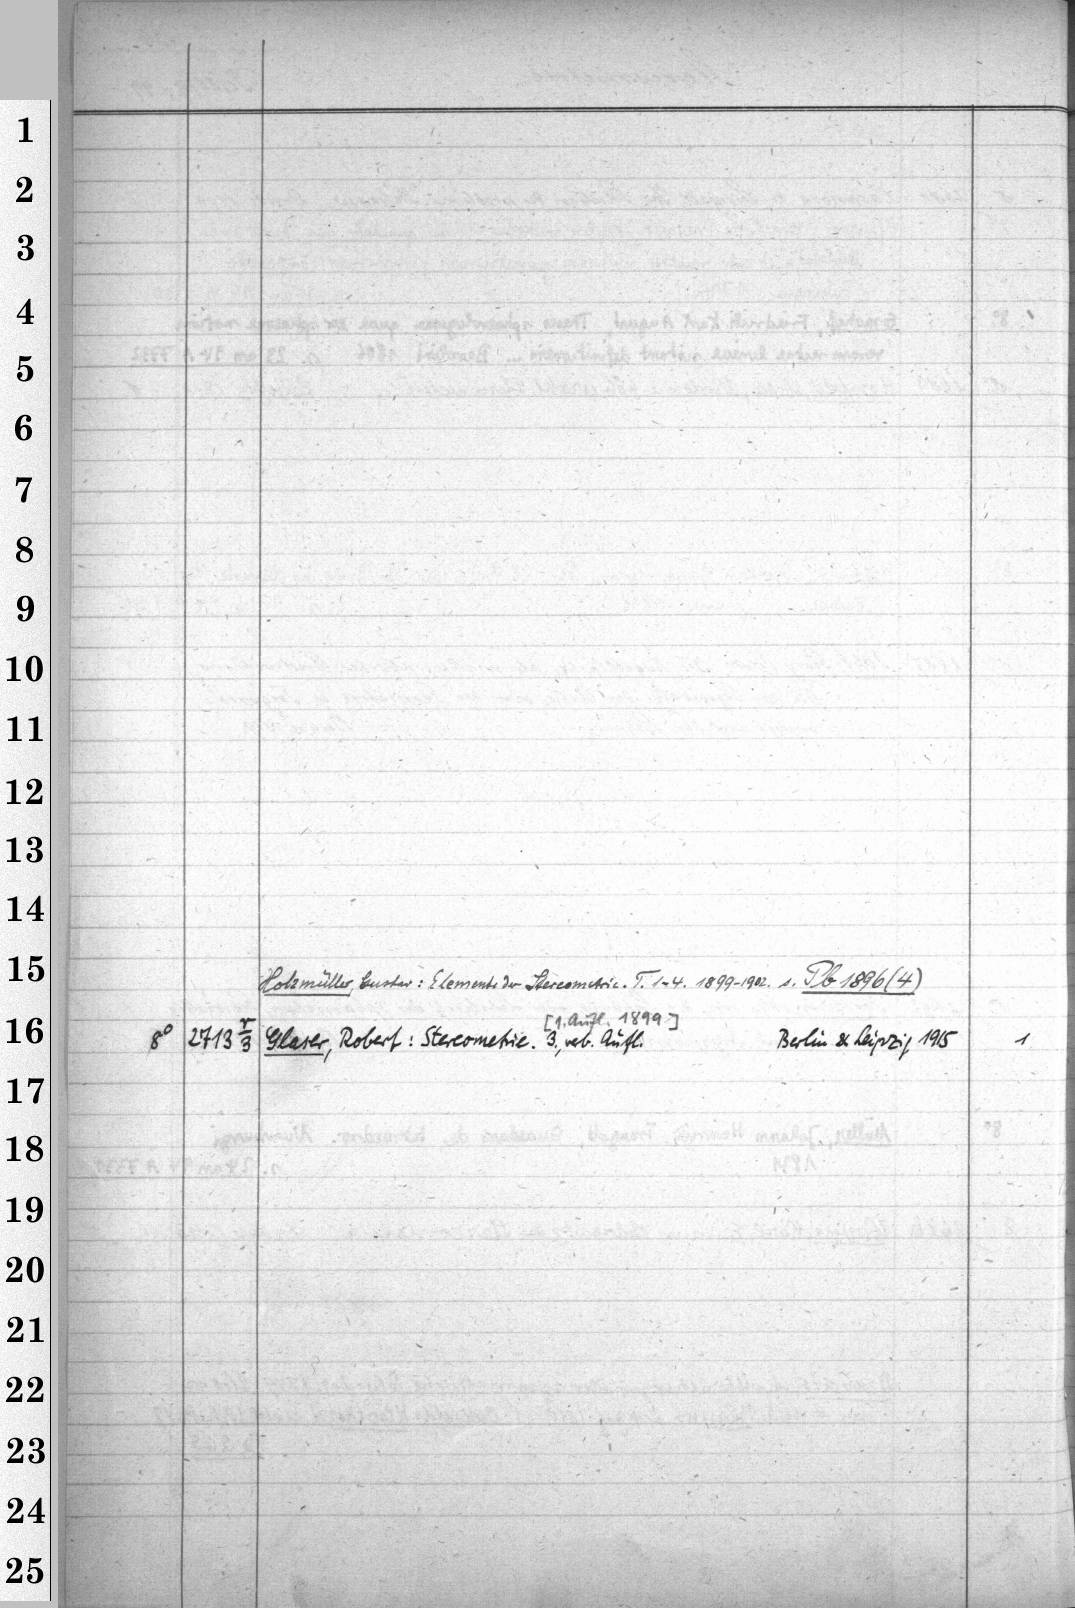 1
2
3
4
5
6
7
8
9
10
11
12
13
14
15
Holzmüller, Gustav: Elemente der Stereometrie. T. 1-4. 1899-1902. s. Pb 1896(4)
[1. Aufl. 1899]
16
8° 2713 r/3 Glaser, Robert: Stereometrie. 3., verb. Aufl. Berlin & Leipzig 1915 1
17
18
19
20
21
22
23
24
25